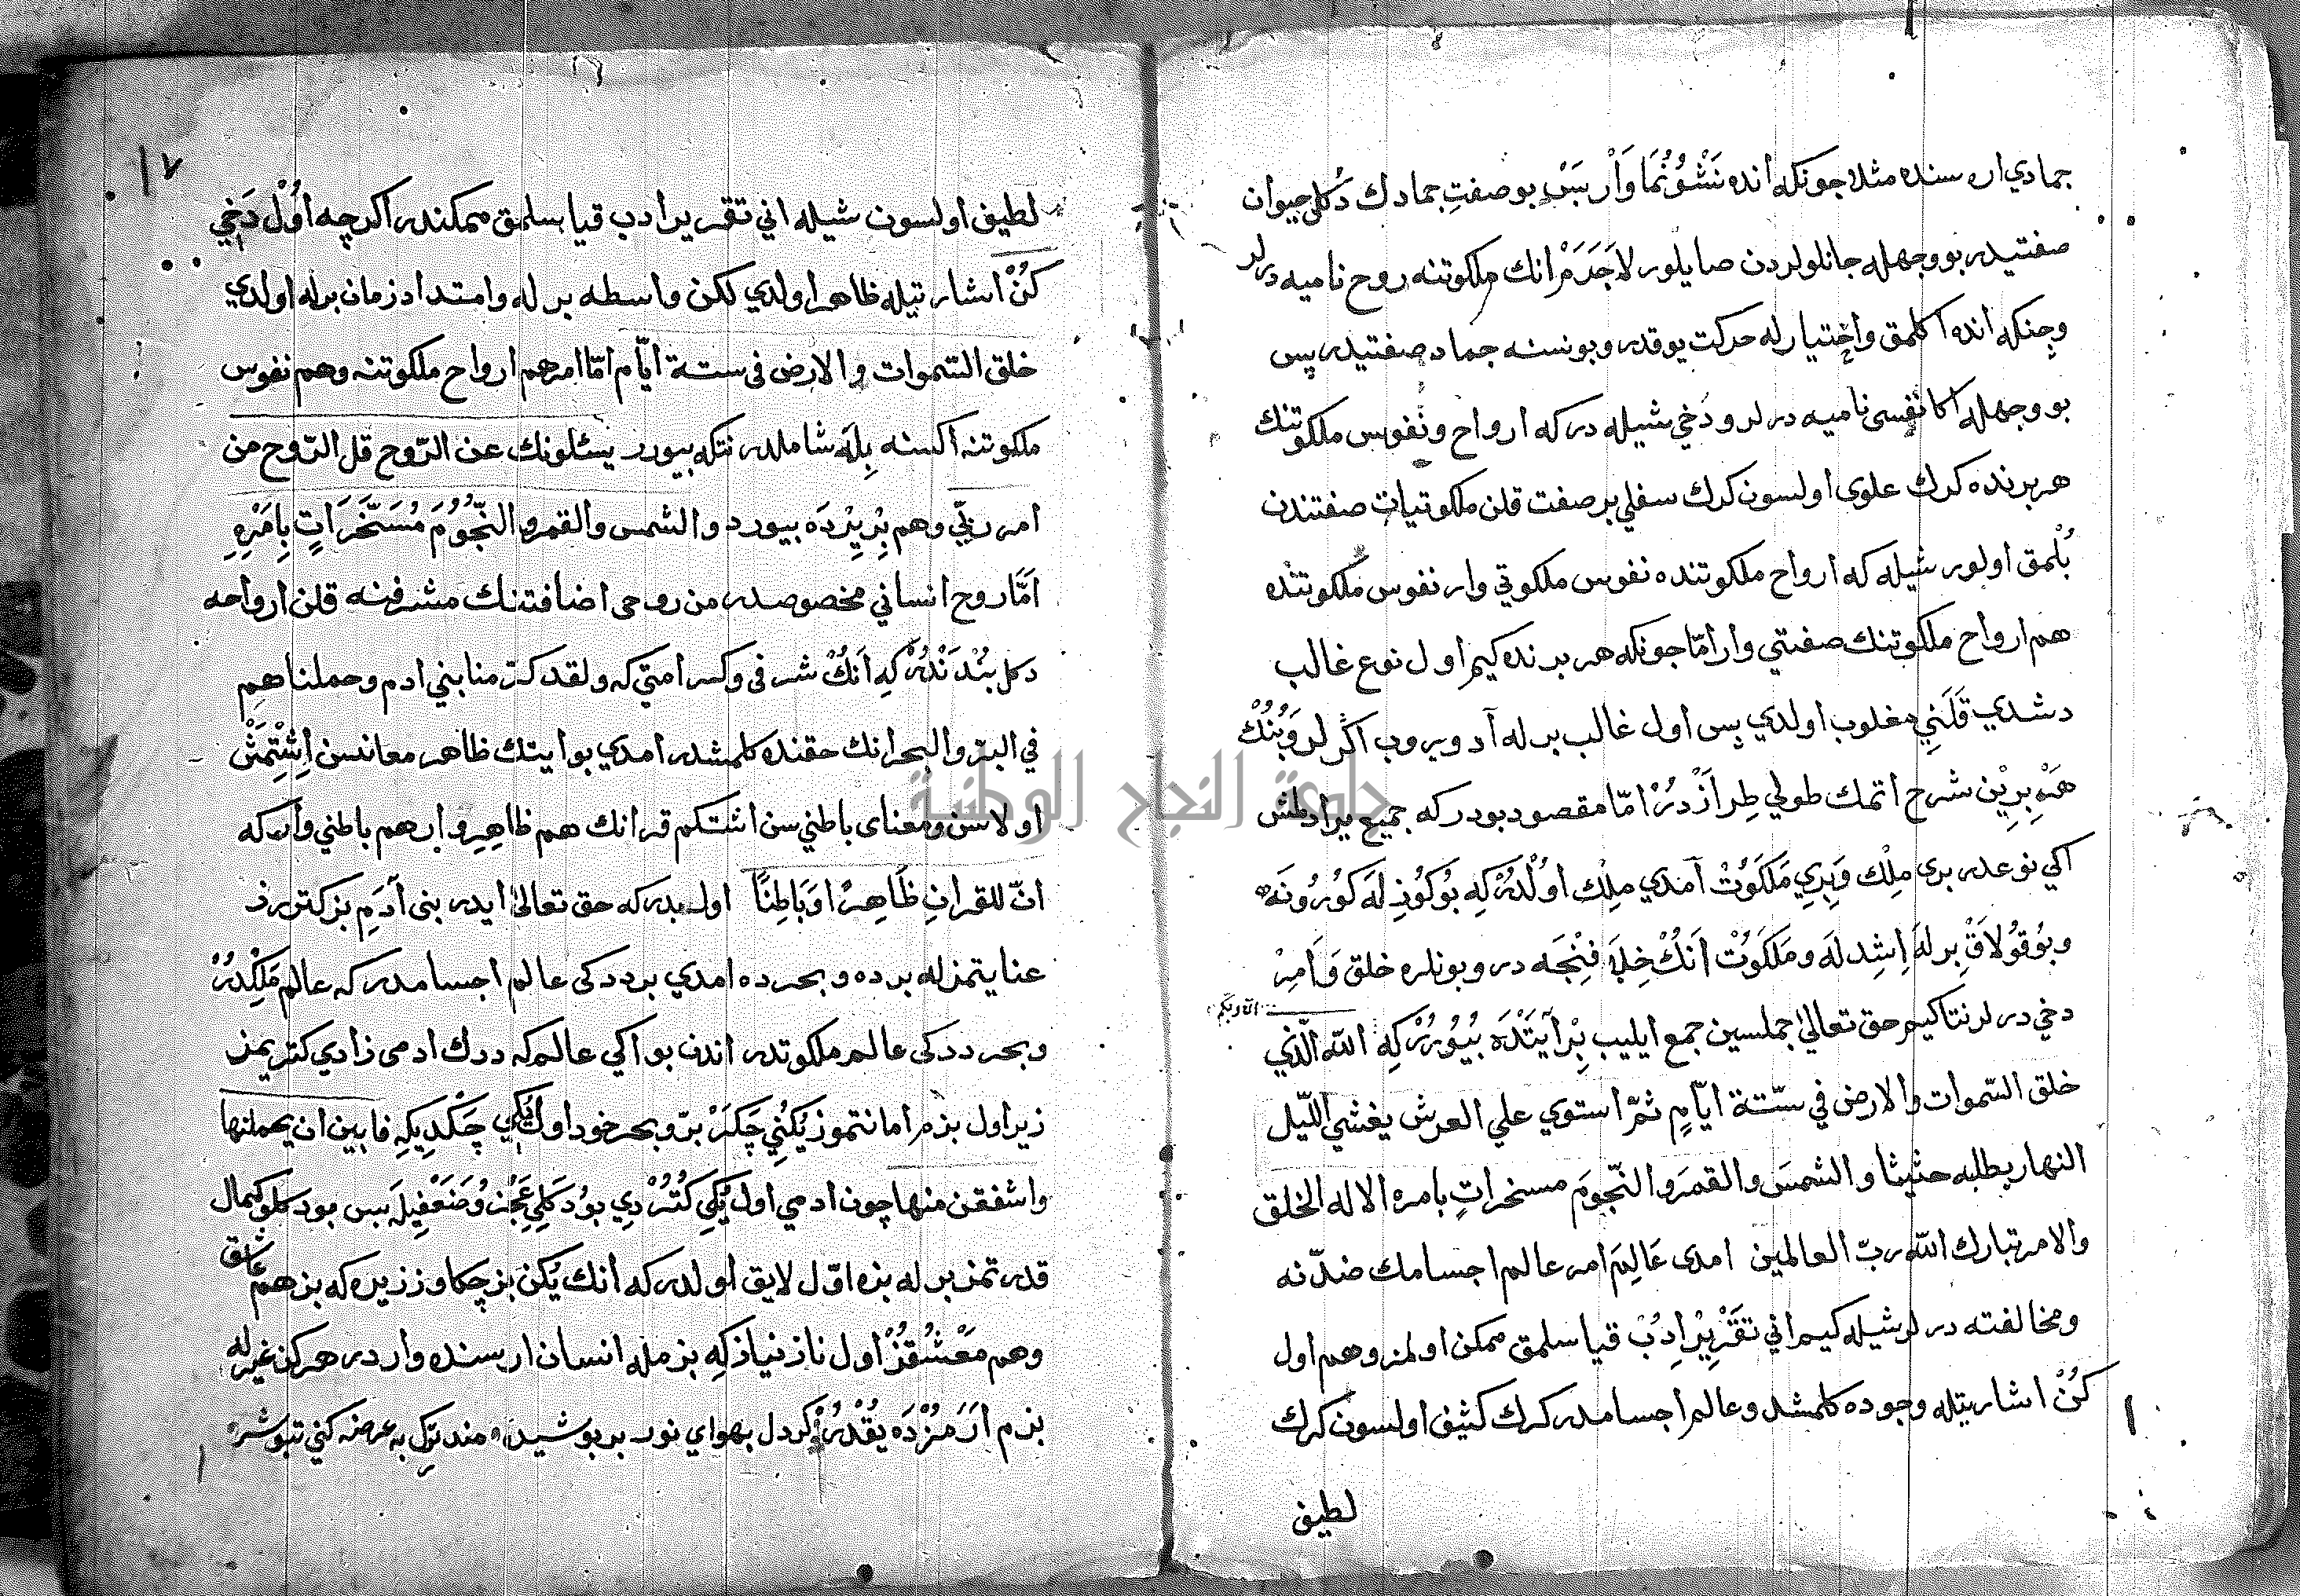 جمادي اره سنده مثلا جونكه انده نَشْوُنُمَا وَارْ بَسْ بو صفتِ جمادك دُكلي حيوان
صفتيدر بو وجهله جانلولردن صايلور لاجَرَمْ انك ملكوتنه روح ناميه درلر
وچنكه انده اكلمق واختيارله حركت يوقدر و بو نسنه جماد صفتيدر پس
بو وجهله اكا نفسى ناميه درلر ودَخي شيله دركه ارواح ونُفوس ملكوتنك
هر برنده كرك علوى اولسون كرك سفلي بر صفت قلن ملكوتيات صفتندن
بُلمق اولور شيله كه ارواح ملكوتنده نفوس ملكوتي وار نفوس ملكوتنده
هم ارواح ملكوتنك صفتي وار امّا جونكه هر برنده كيم اول نوع غالب
دشدي قَلَنِي مغلوب اولدي پس اول غالب برله آد ويروب اكرلر وَبُنُكْ
هَرْ بِرِيْن شرح اتمك طولي طِرازْدُرْ امّا مقصود بودركه جميع يرادلمش
اكي نوعدر برى مِلْك وَبِرِي مَلَكُوتْ آمدي مِلْك اوُلْدُرْكِه بُوكُوزِلَه كُورُونَه
وبُوقُولاَقْ برلَه اِشِدلَه ومَلَكُوتْ اَنُكْ خِلاَفِنْجَه در وبونلره خلق وَاَمِرْ
دخي درلر نتاكيم حق تعالىٰ جملسين جمع ايليب بْرآيَتْدَه بُيُورُرْكِه الله الّذي
خلق السّموات والارض في ستّة ايّامٍ ثمّ استوي علي العرش يغشي اللّيل
النهار يطلبه حثيثا والشمسَ والقمرَ والنّجومَ مسخراتٍ بامره الا له الخلق
والامر تبارك الله ربّ العالمين امدى عَالِمَ امر عالم اجسامك ضدّنه
ومخالفته درلر شيله كيم اني تَقَرِيْر اِدِبْ قياسلمق ممكن اولمز وهم اول
كُنْ اشارتيله وجوده كلمشدر وعالم اجسامدر كرك كثيف اولسون كرك
لطيف
١٧
لطيف اولسون شيله اني تقرير ادب قياسلمق ممكندر اكرچه اوُلْ دَخِي
كُنْ اشارتيله ظاهر اولدي لكن واسطه برله وامتداد زمان برله اولدي
خلق السّموات والارض فى ستة ايّام امّا امر هم ارواح ملكوتنه وهم نفوس
ملكوتنه اكسنه بِلَه شاملدر نتكه بيورر يسئلونك عن الرّوح قل الرّوح من
امر ربّي وهم بِرْيِرْدَه بيورر والشمس والقمر والنّجُومَ مُسَخَّرَاتٍ بِاَمْرِهِ
اَمَّا روح انساني مخصوصدر من روحى اضافتنك مشرفنه قلن ارواحه
دكل بُنْدَنْدُرْكِه اَنُكْ شرفى وكرامتي كه ولقد كرّمنا بني ادم وحملناهم
في البرّ والبحر انك حقنده كلمشدر امدي بو ايتك ظاهر معانسن اِشِتْمَشْ
اولاسن ومعناى باطني سن اشتكم قرانك هم ظاهرِ وار هم باطني وار كه
انّ للقرانِ ظَاهِرًا وَبَاطِنًا اولدر كه حق تعالىٰ ايدر بنى آدمِ بز كتررز
عنايتمزله برده وبحرده امدي بر ددكى عالم اجسامدر كه عالم مَلِكْدُرْ
وبحر ددكى عالم ملكوتدر اندن بو اكي عالمكه درك ادمى زادي كتريمز
زيرا اول بزم امانتموز يُكُنِي چَكَرْ برّ و بحر خود اول يُكي چَكْدِيكِه فابين ان يحملنها
واشفقن منها چون ادمي اول يُكِي كُتُرْدِي بوُ دَكلِي عَجْز وُضَعْفِيلَه بس بو دكلو كمال
قدرتمز برله بزه اوّل لايق اولدر كه انك يُكن بز چكاوز زيره كه بز هم عاشق
وهم مَعْشُقُزْ اول ناز نياز كِه بزمله انسان اره سنده وار در هركز غيرله
بزم اَرَمُزْدَه يُقْدُرْ كردل بهواي نور بر بوشيد